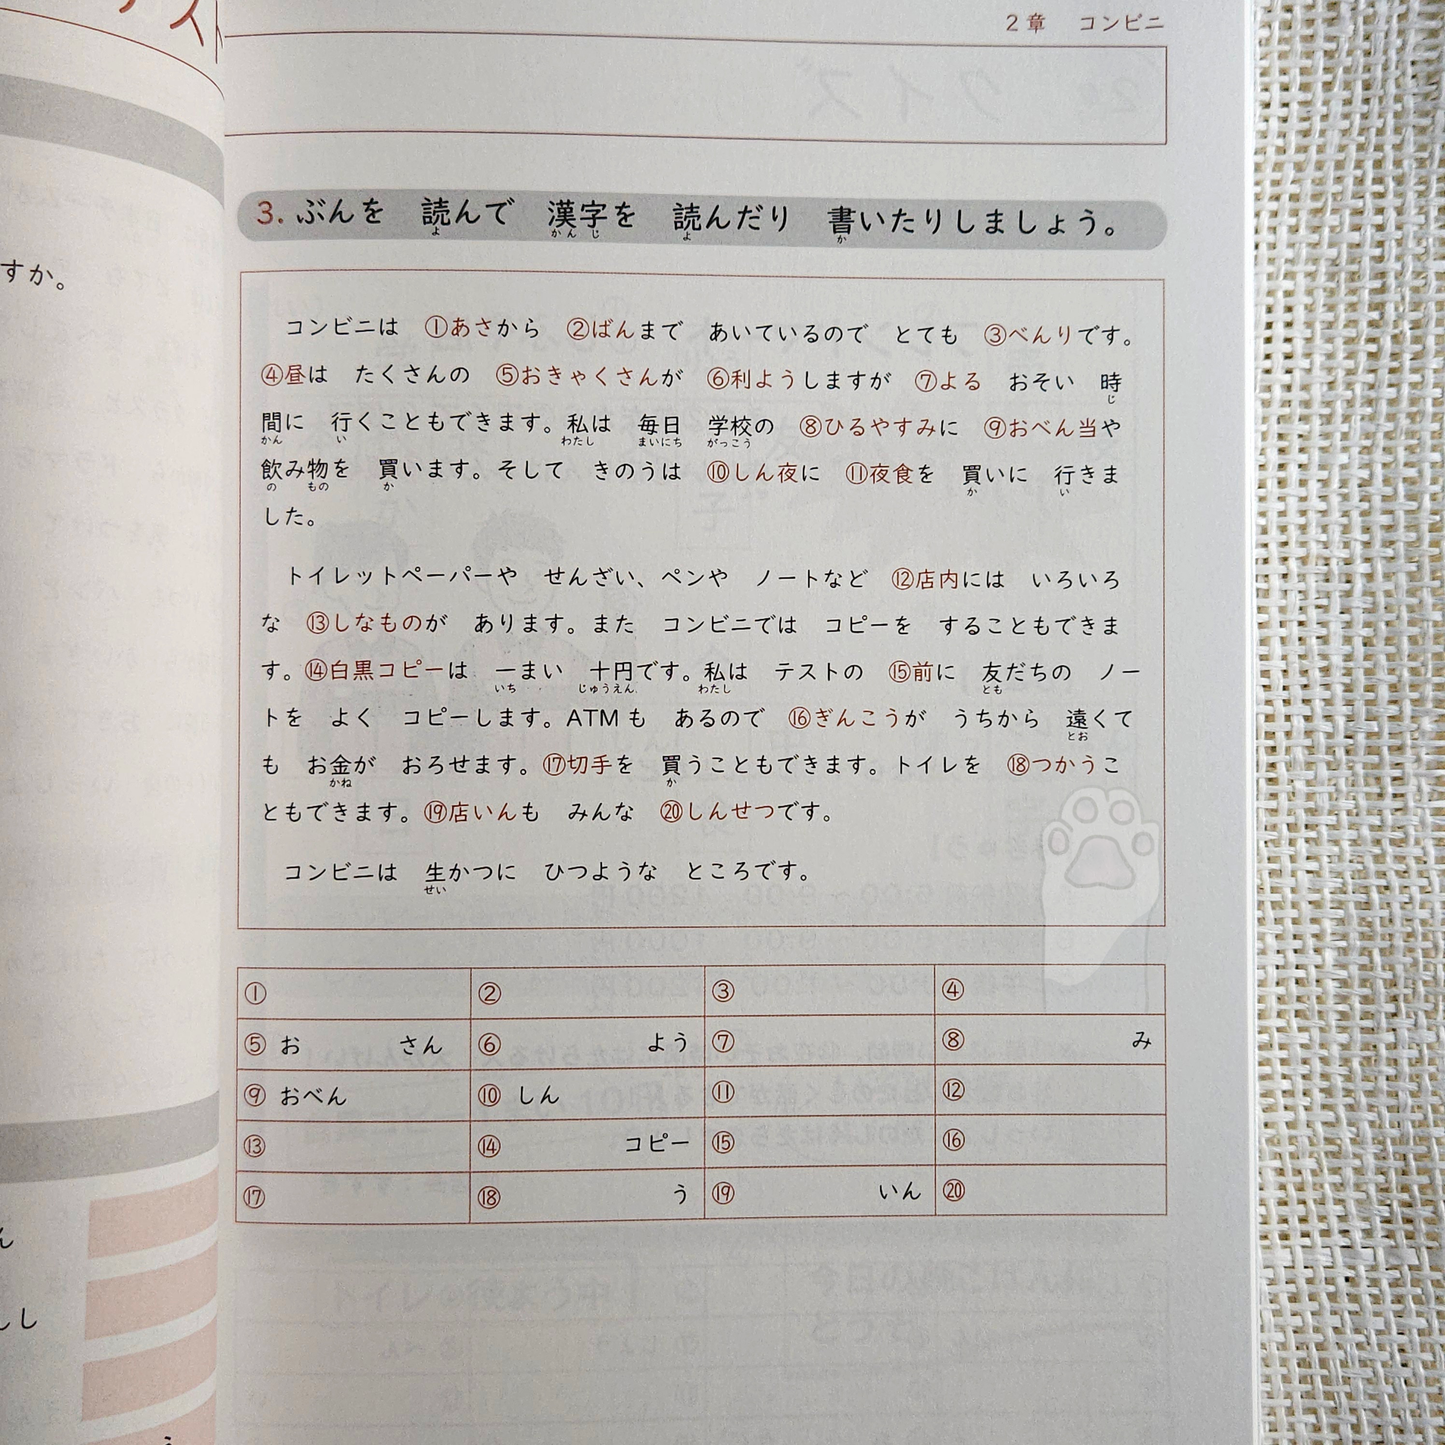 2章 コンビニ
すか。
3. ぶんを 読んで 漢字を 読んだり 書いたりしましょう。
よ かんじ よ か
コンビニは ①あさから ②ばんまで あいているので とても ③べんりです。
④昼は たくさんの ⑤おきゃくさんが ⑥利ようしますが ⑦よる おそい 時
じ
間に 行くこともできます。私は 毎日 学校の ⑧ひるやすみに ⑨おべん当や
かん い わたし まいにち がっこう
飲み物を 買います。そして きのうは ⑩しん夜に ⑪夜食を 買いに 行きま
の もの か か い
した。
トイレットペーパーや せんざい、ペンや ノートなど ⑫店内には いろいろ
な ⑬しなものが あります。また コンビニでは コピーを することもできま
す。⑭白黒コピーは 一まい 十円です。私は テストの ⑮前に 友だちの ノー
いち じゅうえん わたし とも
トを よく コピーします。ATMも あるので ⑯ぎんこうが うちから 遠くて
とお
も お金が おろせます。⑰切手を 買うこともできます。トイレを ⑱つかうこ
かね か
ともできます。⑲店いんも みんな ⑳しんせつです。
コンビニは 生かつに ひつような ところです。
せい
① ② ③ ④
⑤ お さん ⑥ よう ⑦ ⑧ み
⑨ おべん ⑩ しん ⑪ ⑫
⑬ ⑭ コピー ⑮ ⑯
⑰ ⑱ う ⑲ いん ⑳